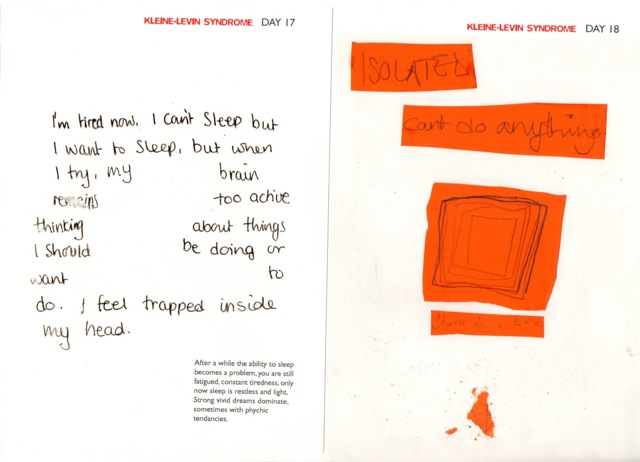 KLEINE-LEVIN SYNDROME DAY 17
I'm tired now. I can't sleep but
I want to sleep, but when
I try, my brain
remains too active
thinking about things
I should be doing or
want to
do. I feel trapped inside
my head.
After a while the ability to sleep
becomes a problem, you are still
fatigued, constant tiredness, only
now sleep is restless and light.
Strong vivid dreams dominate,
sometimes with phychic
tendancies.
KLEINE-LEVIN SYNDROME DAY 18
ISOLATED
cant do anything
in a box